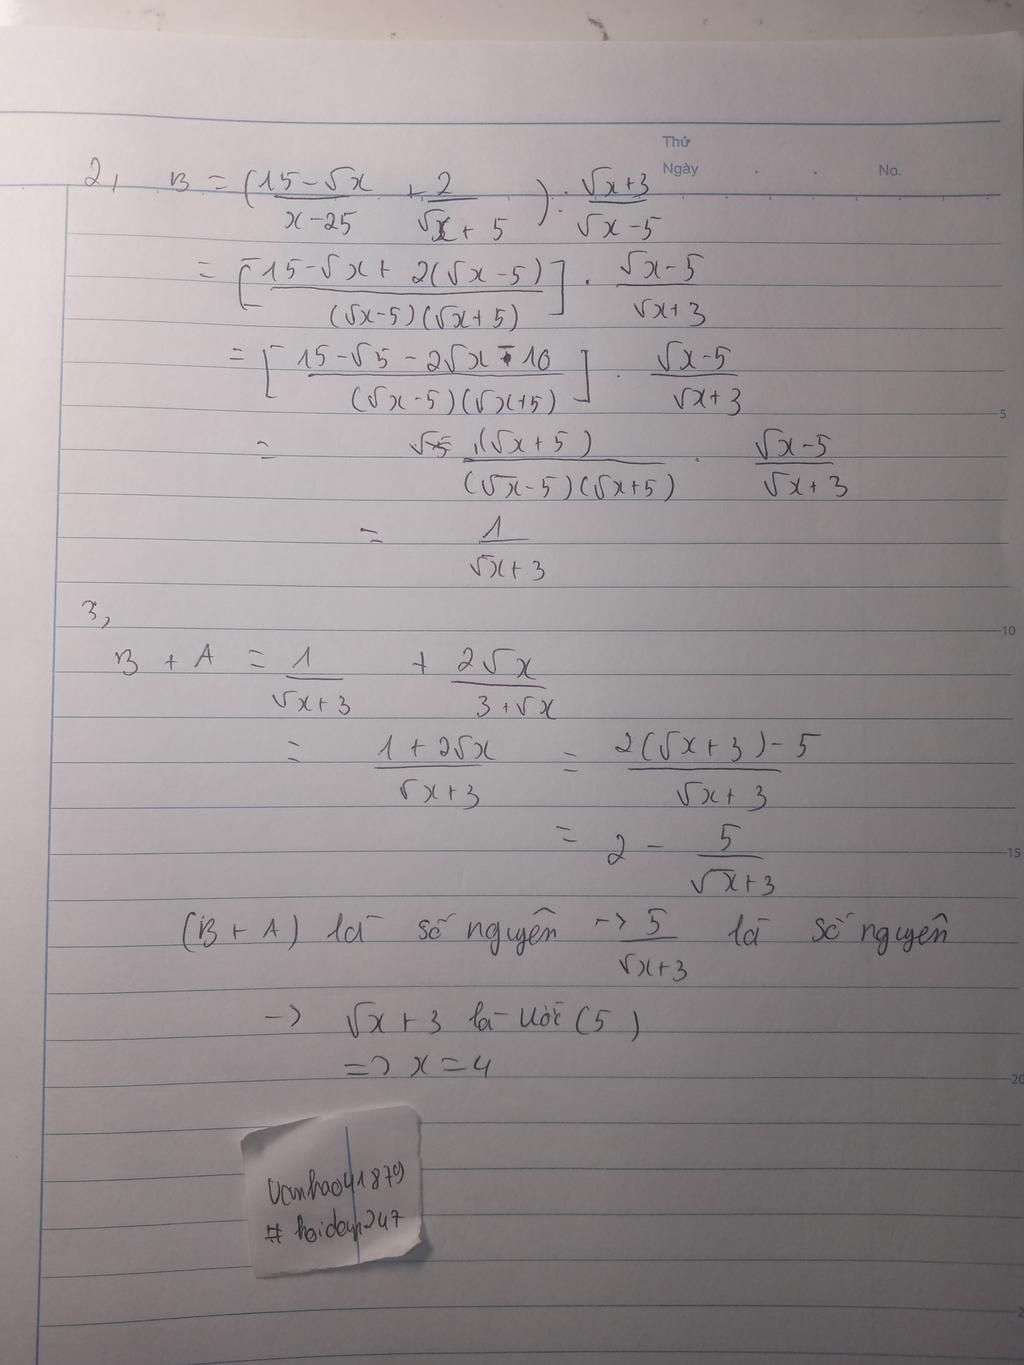 Thứ
Ngày No.
2, B = (15-√x / x-25 + 2 / √x + 5) : √x+3 / √x-5
= [15-√x + 2(√x-5) / (√x-5)(√x+5)] . √x-5 / √x+3
= [15-√5 - 2√x - 10 / (√x-5)(√x+5)] . √x-5 / √x+3
5
= 1(√x+5) / (√x-5)(√x+5) . √x-5 / √x+3
= 1 / √x+3
3,
10
B + A = 1 / √x+3 + 2√x / 3+√x
= 1 + 2√x / √x+3 = 2(√x+3)-5 / √x+3
= 2 - 5 / √x+3
15
(B + A) là số nguyên -> 5 / √x+3 là số nguyên
-> √x+3 là ước (5)
=> x = 4
20
Vanhao41879
# hoidap247